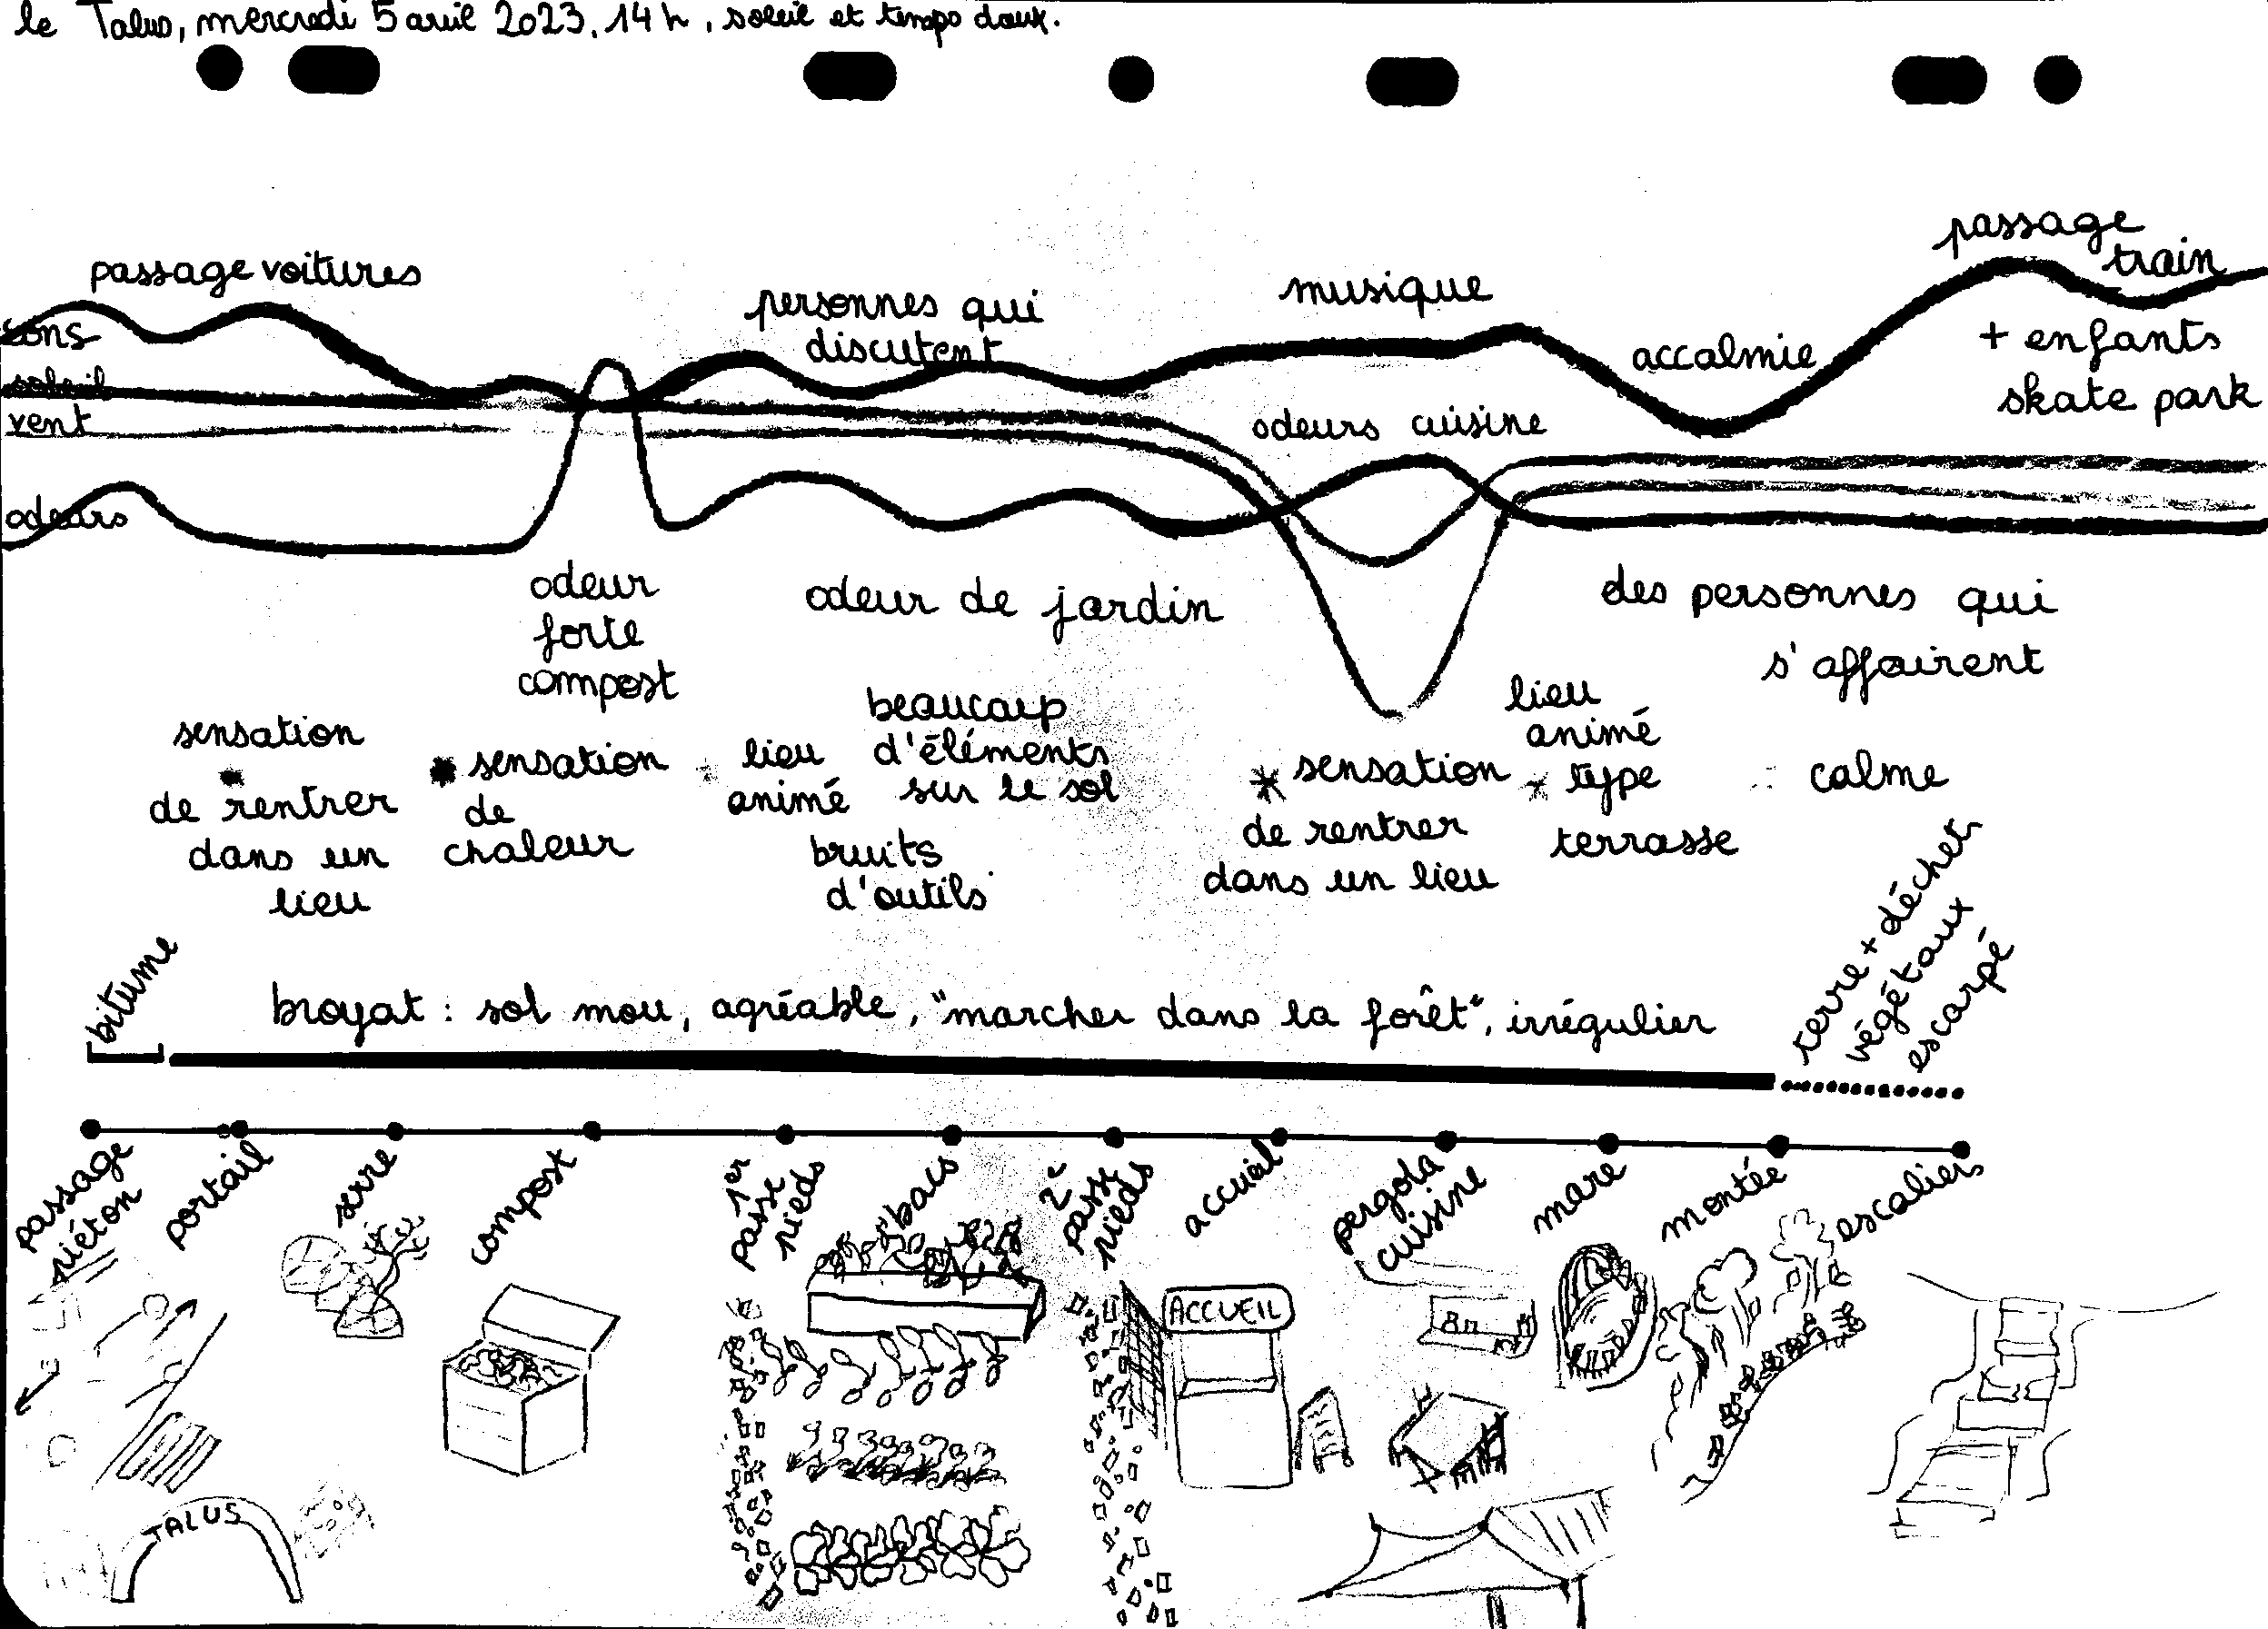 le Talus, mercredi 5 avril 2023, 14h, soleil et temps doux.
passage voitures
personnes qui
discutent
musique
accalmie
passage
train
+ enfants
skate park
sons
soleil
vent
odeurs
odeurs cuisine
odeur
forte
compost
odeur de jardin
des personnes qui
s'affairent
sensation
de rentrer
dans un
lieu
sensation
de
chaleur
lieu
animé
beaucoup
d'éléments
sur le sol
bruits
d'outils
sensation
de rentrer
dans un lieu
lieu
animé
type
terrasse
calme
bitume
broyat : sol mou, agréable, "marcher dans la forêt", irrégulier
terre + déchets
végétaux
escarpé
passage
piéton
portail
serre
compost
1er
passe
pieds
bacs
2e
passe
pieds
accueil
pergola
cuisine
mare
montée
escaliers
ACCUEIL
TALUS